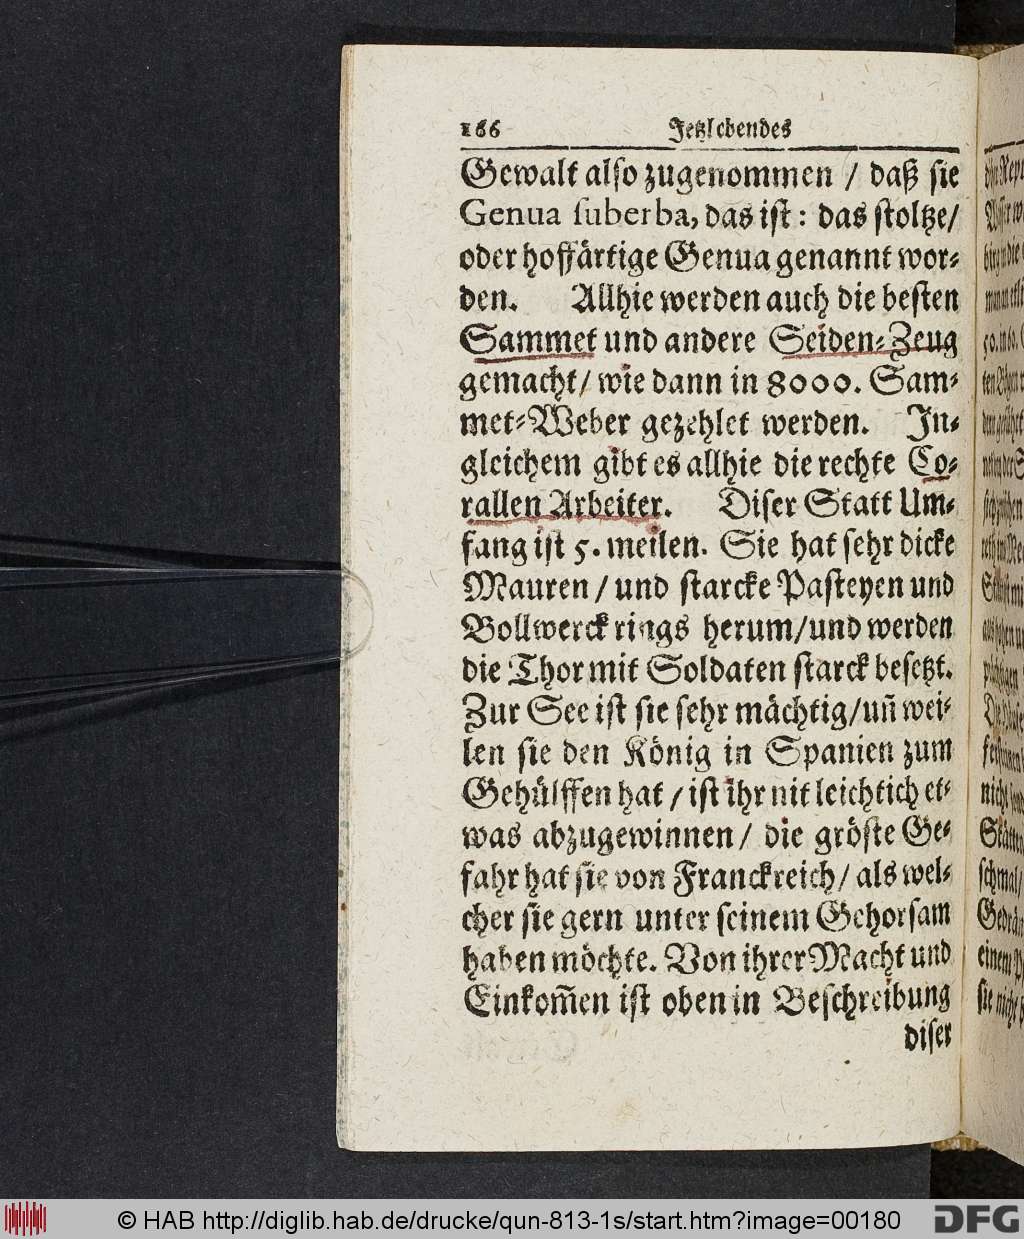 166 Jetzlebendes
Gewalt also zugenommen / daß sie
Genua suberba, das ist: das stoltze/
oder hoffärtige Genua genannt wor-
den. Allhie werden auch die besten
Sammet und andere Seiden-Zeug
gemacht/ wie dann in 8000. Sam-
met-Weber gezehlet werden. In-
gleichem gibt es allhie die rechte Co-
rallen Arbeiter. Diser Statt Um-
fang ist 5. meilen. Sie hat sehr dicke
Mauren / und starcke Pasteyen und
Bollwerck rings herum/und werden
die Thor mit Soldaten starck besetzt.
Zur See ist sie sehr mächtig/uñ wei-
len sie den König in Spanien zum
Gehülffen hat / ist ihr nit leichtich et-
was abzugewinnen/ die gröste Ge-
fahr hat sie von Franckreich/ als wel-
cher sie gern unter seinem Gehorsam
haben möchte. Von ihrer Macht und
Einkom̃en ist oben in Beschreibung
diser
© HAB http://diglib.hab.de/drucke/qun-813-1s/start.htm?image=00180 DFG